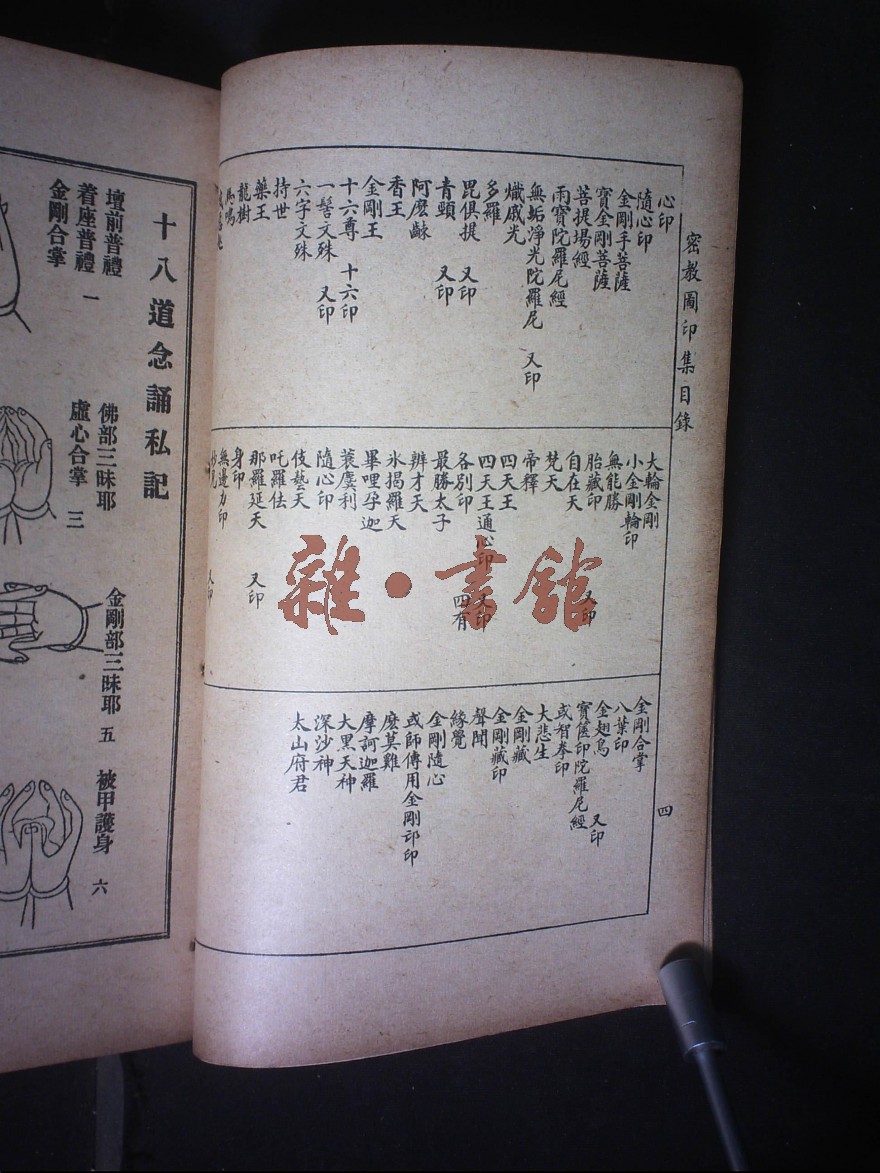 密教圖印集目錄
四
心印
隨心印
金剛手菩薩
寶金剛菩薩
菩提場經
雨寶陀羅尼經
無垢淨光陀羅尼 又印
熾盛光
多羅
毘俱提 又印
青頸 又印
阿麽齡
香王
金剛王
十六尊 十六印
一髻文殊 又印
六字文殊
持世
藥王
龍樹
馬鳴
大輪金剛
小金剛輪印
無能勝
胎藏印 又印
自在天
梵天
帝釋
四天王
四天王通心印 又印
各別印 四有
最勝太子
辨才天
氷揭羅天
畢哩孕迦
蘘麌利
隨心印
伎藝天
吒羅佉
那羅延天 又印
身印
無邊力印
又印
金剛合掌
八葉印
金翅鳥 又印
寶篋印陀羅尼經
或智拳印
大悲生
金剛藏
金剛藏印
聲聞
緣覺
金剛隨心
或師傳用金剛部印
麽莫雞
摩訶迦羅
大黑天神
深沙神
太山府君
十八道念誦私記
壇前普禮
着座普禮 一
金剛合掌
佛部三昧耶
虛心合掌 三
金剛部三昧耶 五
被甲護身 六
雜·書館